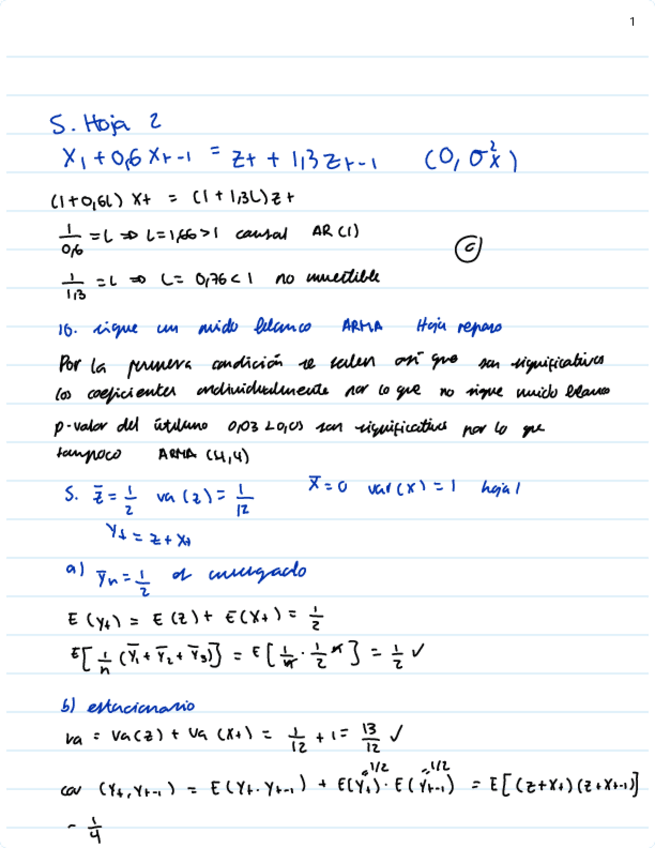 1
5. Hoja 2
X₁ + 0,6 Xt-1 = Zt + 1,3 Zt-1 (0, σ²x)
(1+0,6L) Xt = (1 + 1,3L) Zt
1/0,6 = L ⇒ L=1,66>1 causal AR(1)
c
1/1,3 = L ⇒ L= 0,76<1 no invertible
16. sigue un ruido blanco ARMA Hoja repaso
Por la primera condición se salen así que son significativos
los coeficientes individualmente por lo que no sigue ruido blanco
p-valor del último 0,03 < 0,05 son significativos por lo que
tampoco ARMA (4,4)
5. z̄ = 1/2 va(z) = 1/12 X̄ = 0 var(x) = 1 hoja 1
Yt = z + Xt
a) Ȳn = 1/2 es insesgado
E(Yt) = E(z) + E(Xt) = 1/2
E[1/n (Ȳ1 + Ȳ2 + Ȳ3)] = E[1/n · 1/2 n] = 1/2 ✓
b) estacionario
va = va(z) + va(Xt) = 1/12 + 1 = 13/12 ✓
cov (Yt, Yt-1) = E(Yt · Yt-1) + E(Yt)^1/2 · E(Yt-1)^1/2 = E[(z+Xt)(z+Xt-1)]
- 1/4